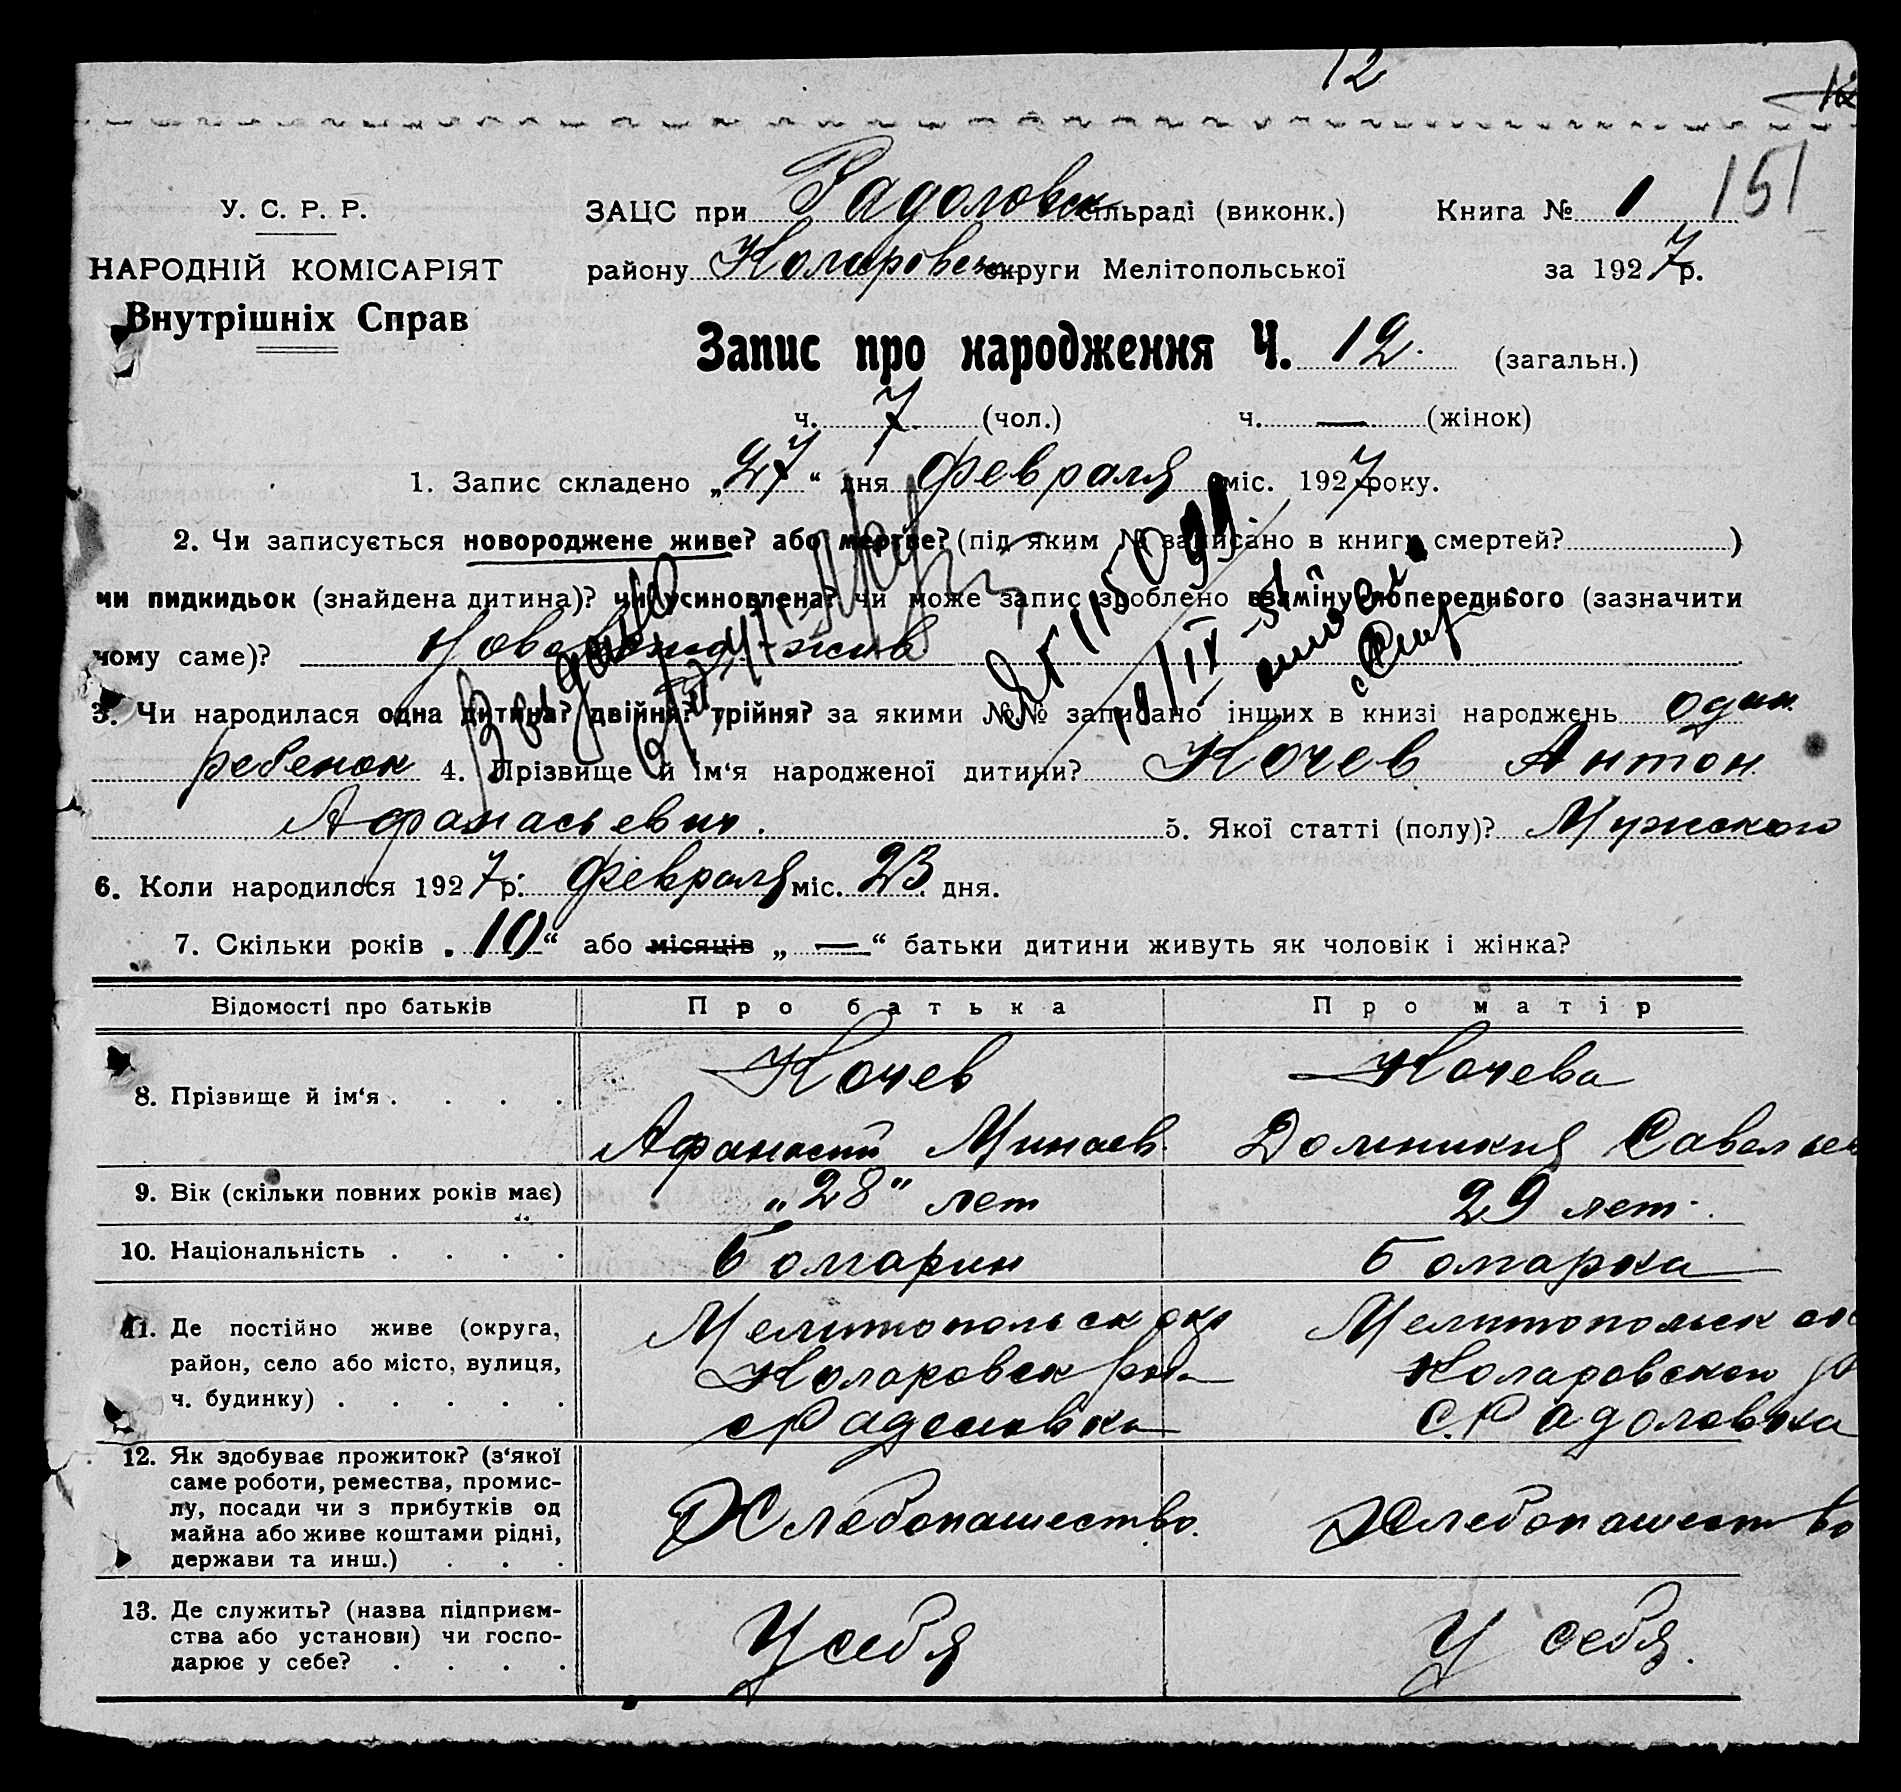 12
12
151
У. С. Р. Р.
ЗАЦС при Радоловск сільраді (виконк.) Книга № 1
НАРОДНІЙ КОМІСАРІЯТ
району Коларовськ округи Мелітопольської за 1927 р.
Внутрішніх Справ
Запис про народження Ч. 12. (загальн.)
ч. 7 (чол.) ч. — (жінок)
1. Запис складено „27“ дня февраля міс. 1927 року.
2. Чи записується новороджене живе? або мертве? (під яким № записано в книгу смертей? )
чи пидкидьок (знайдена дитина)? чи усиновлена? чи може запис зроблено взаміну попереднього (зазначити
чому саме)?
Выдано
№ 115093
19/IX-51
3. Чи народилася одна дитина? двійня? трійня? за якими №№ записано інших в книзі народжень один
ребенок 4. Прізвище й ім‘я народженої дитини? Кочев Антон
Афанасьевич. 5. Якої статті (полу)? Мужского
6. Коли народилося 1927 р. февраля міс. 23 дня.
7. Скільки років „10“ або місяців „—“ батьки дитини живуть як чоловік і жінка?
Відомості про батьків Про батька Про матір
Кочев Кочева
8. Прізвище й ім‘я . . . .
Афанасий Минаев. Домникия Савельев
9. Вік (скільки повних років має) „28“ лет 29 лет.
10. Національність . . . . Болгарин Болгарка
Мелитопольск окр Мелитопольск
11. Де постійно живе (округа,
район, село або місто, вулиця, Коларовск Коларовского
ч. будинку) . . . . . с Радоловка с. Радоловка
12. Як здобуває прожиток? (з‘якої
саме роботи, ремества, промис-
лу, посади чи з прибутків од Хлебопашество. Хлебопашество
майна або живе коштами рідні,
держави та инш.) . . .
13. Де служить? (назва підприєм-
ства або установи) чи госпо- У себя У себя.
дарює у себе? . . . .